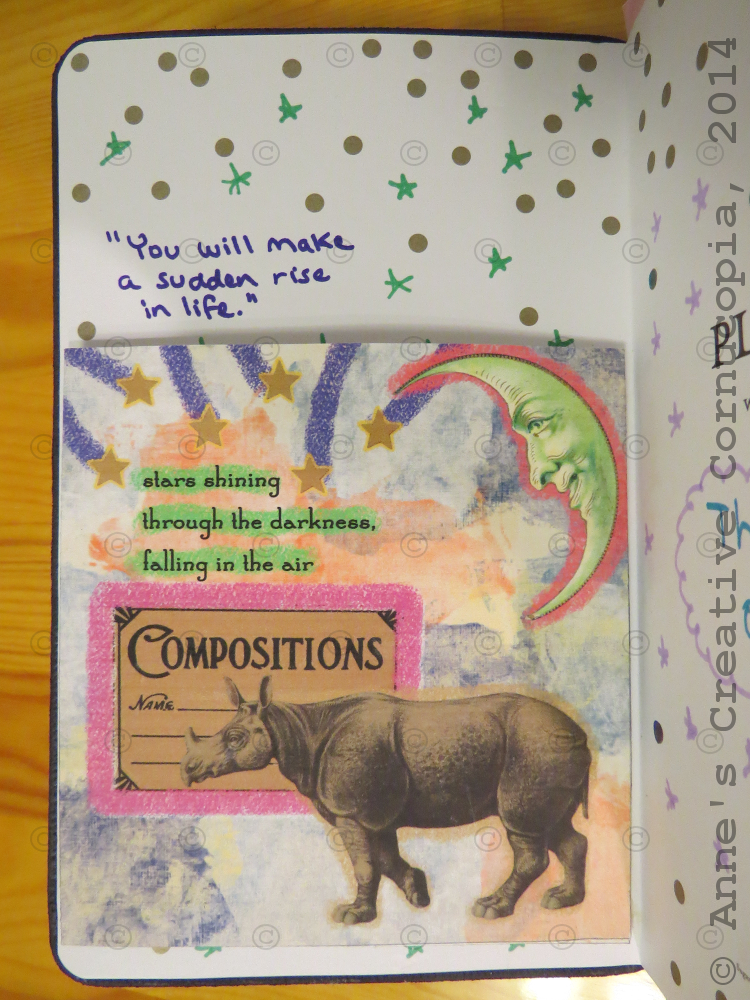 "You will make
a sudden rise
in life."
stars shining
through the darkness,
falling in the air
COMPOSITIONS
NAME
© Anne's Creative Cornucopia, 2014